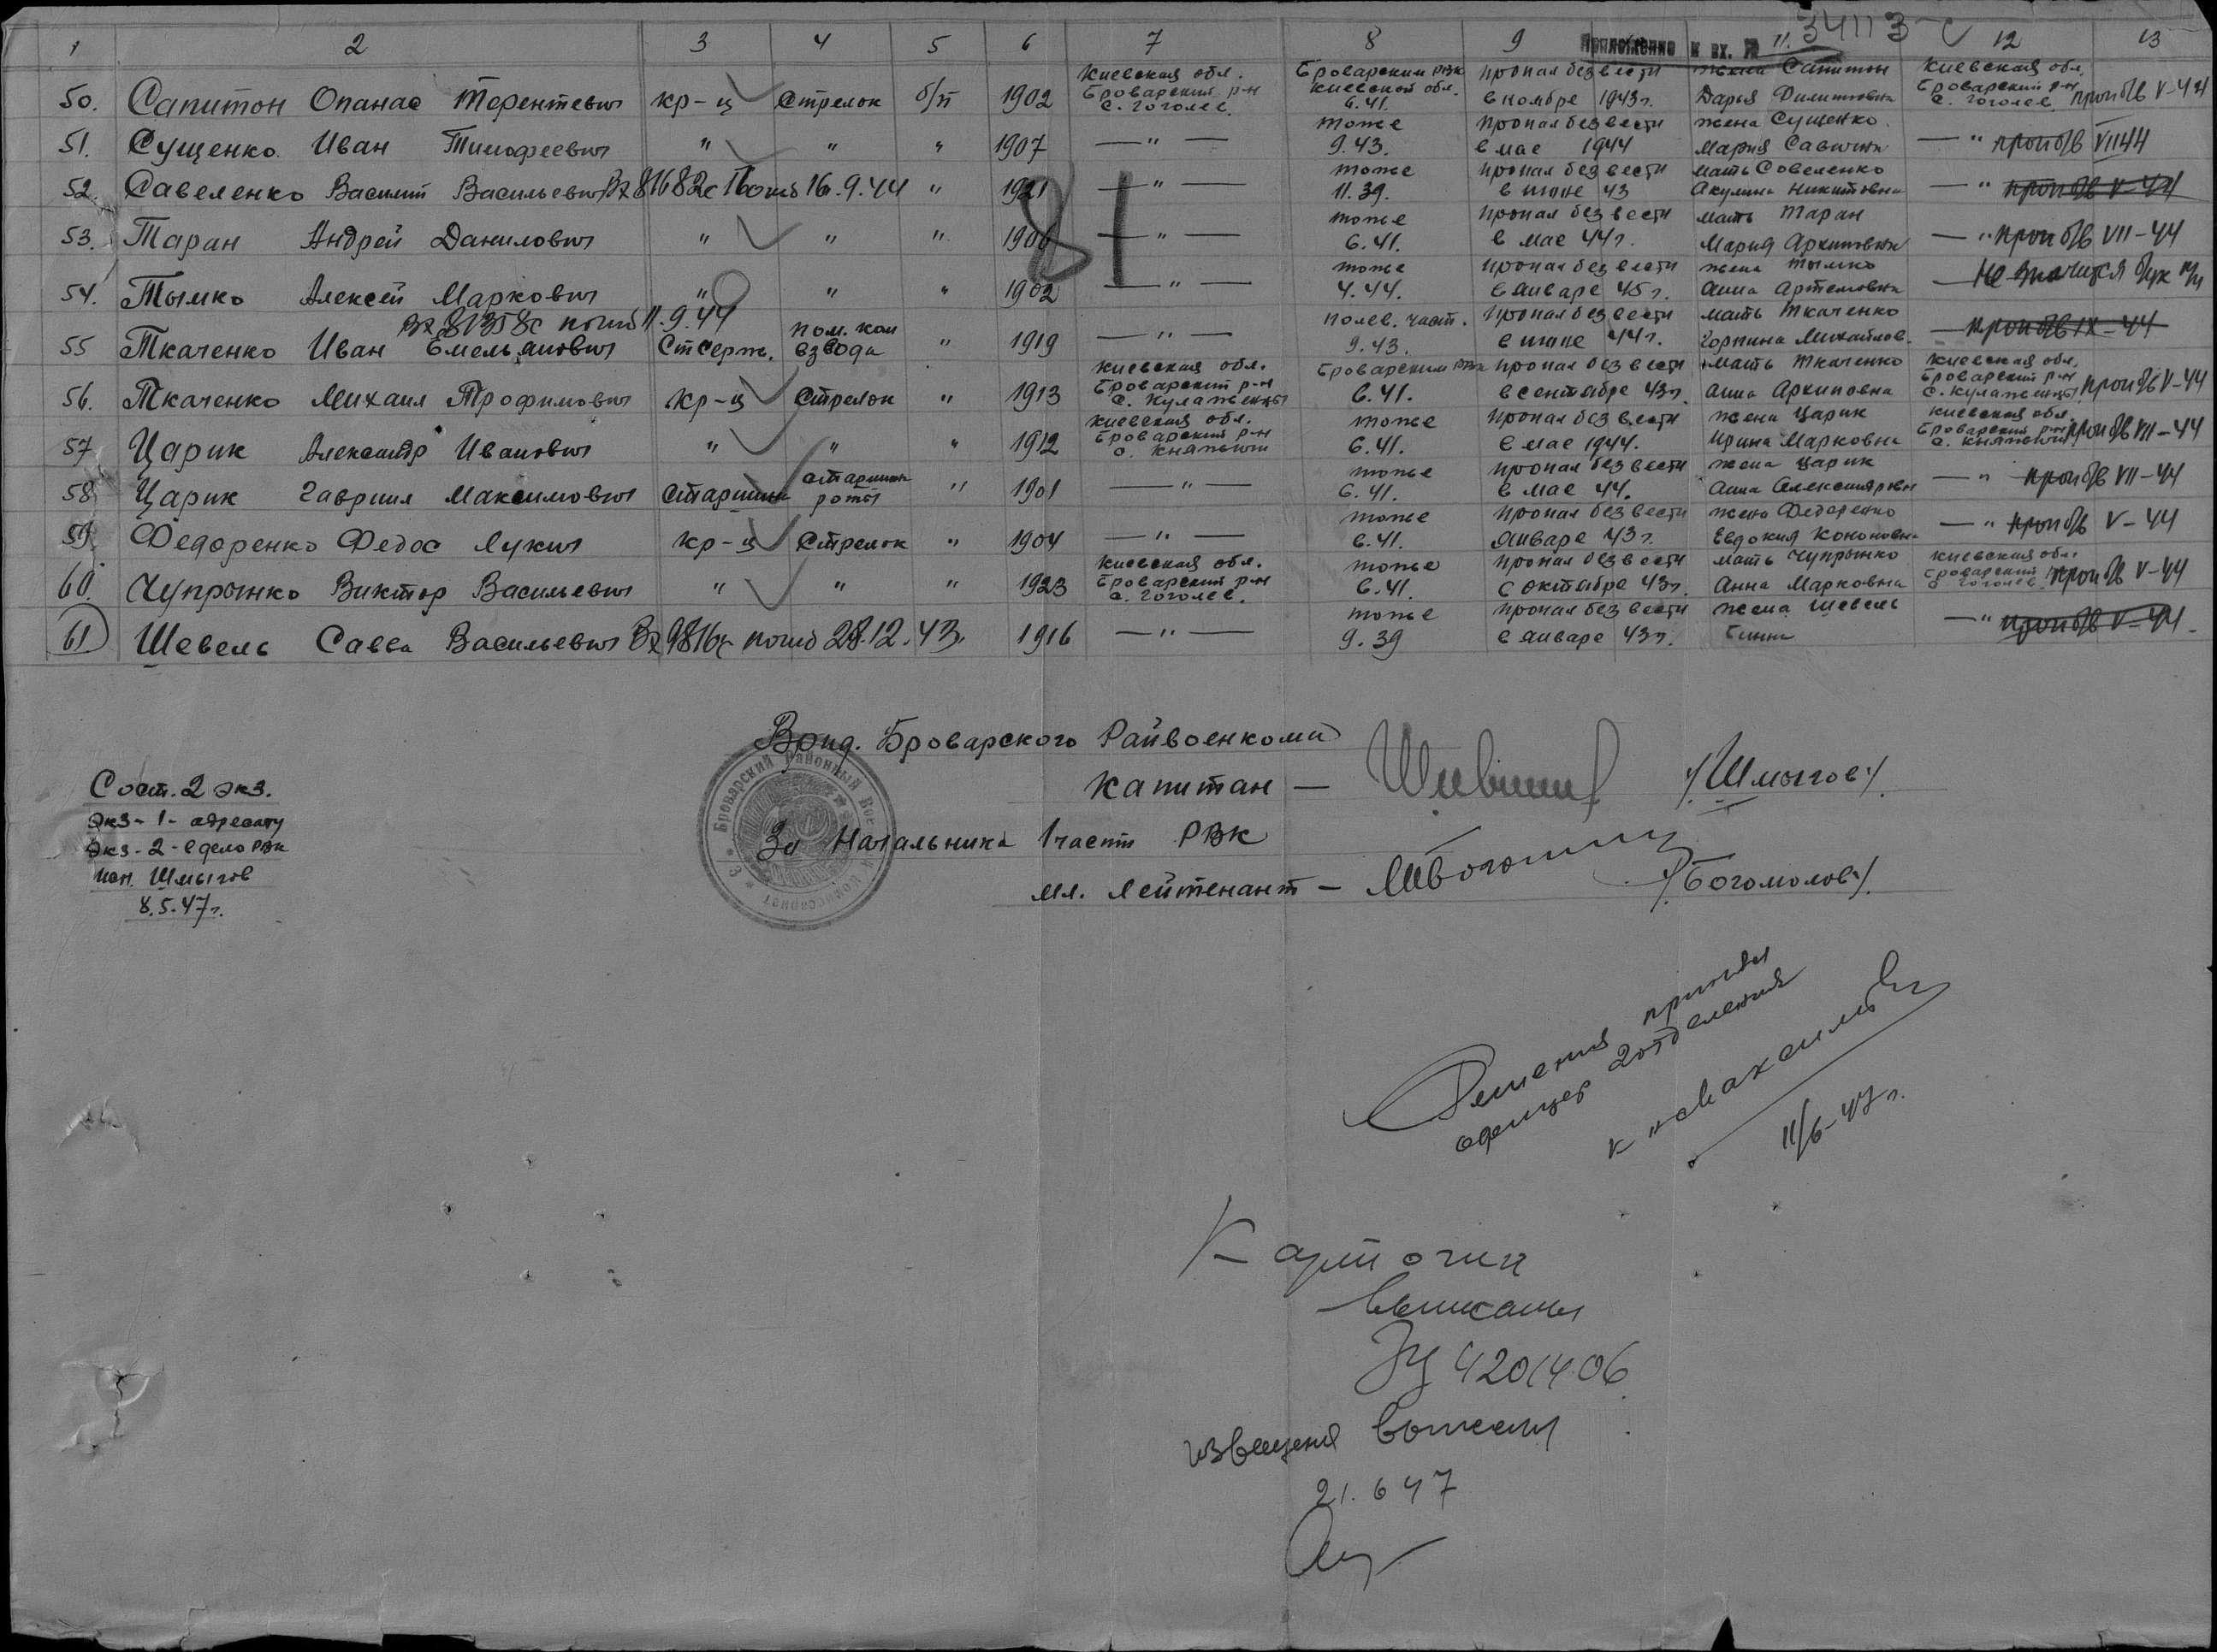 1 2 3 4 5 6 7 8 9 11. 12 13
Приложение к вх. № 34113 с
50. Сапитон Опанас Терентевич кр-ц Стрелок б/п 1902 Киевская обл. Броварский р-н с. Гоголев. Броварским РВК Киевской обл. 6.41. пропал без вести в ноябре 1943 г. жена Сапитон Дарья Филиповна Киевская обл. Броварский р-н с. Гоголев. проп б/в V-44
51. Сущенко Иван Тимофеевич " " " 1907 — " — тоже 9.43. пропал без вести в мае 1944 жена Сущенко Мария Саввична — " проп б/в VII 44
52. Савеленко Василий Васильевич Вх 81682с погиб 16.9.44 " 1921 — " — тоже 11.39. пропал без вести в июне 43 мать Совеленко Акулина Никитовна — " проп б/в V-44
53. Таран Андрей Данилович " " " 1906 — " — тоже 6.41. пропал без вести в мае 44 г. мать Таран Мария Архиповна — " проп б/в VII-44
81
54. Тымко Алексей Маркович " " " 1902 — " — тоже 4.44. пропал без вести в январе 45 г. жена Тымко Анна Артемовна — Не значится
Вх 81358с погиб 11.9.44
55 Ткаченко Иван Емельянович Ст серж. пом. ком взвода " 1919 — " — полев. част. 9.43. пропал без вести в июне 44 г. мать Ткаченко Горпина Михайлов. — проп б/в IX-44
56. Ткаченко Михаил Трофимович кр-ц Стрелок " 1913 Киевская обл. Броварский р-н с. Кулаженцы Броварским РВК 6.41. пропал без вести в сентябре 43 г. мать Ткаченко Анна Архиповна Киевская обл. Броварский р-н с. Кулаженцы проп б/в V-44
57 Царик Александр Иванович " " " 1912 Киевская обл. Броварский р-н с. Княжичи тоже 6.41. пропал без вести в мае 1944. жена Царик Ирина Марковна Киевская обл. Броварский р-н с. Княжичи проп б/в VII-44
58. Царик Гавриил Максимович Старшина старшина роты " 1901 — " — тоже 6.41. пропал без вести в мае 44. жена Царик Анна Александровн — " проп б/в VII-44
59. Федоренко Федос Лукич кр-ц Стрелок " 1904 — " — тоже 6.41. пропал без вести январе 43 г. жена Федоренко Евдокия Кононовна — " проп б/в V-44
60. Чупрынко Виктор Васильевич " " " 1923 Киевская обл. Броварский р-н с. Гоголев. тоже 6.41. пропал без вести с октября 43 г. мать Чупрынко Анна Марковна Киевская обл. Броварский с. Гоголев. проп б/в V-44
61 Шевель Савва Васильевич Вх 9816с погиб 28.12.43. 1916 — " — тоже 9.39 пропал без вести в январе 43 г. жена Шевель — " проп б/в V-44.
Врид. Броварского Райвоенкома
Капитан — /Шмыгов/.
За Начальника 1 части РВК
мл. Лейтенант — /Богомолов/.
Броварский Районный Военный Комиссариат
Сост. 2 экз.
Экз-1-адресату
Экз-2-в дело РВК
исп. Шмыгов
8.5.47 г.
Решения принял
офицер 2 отделения
к-н Максимов
11/6-47 г.
Карточки
выписаны
420 14 06
извещения
21.6 47